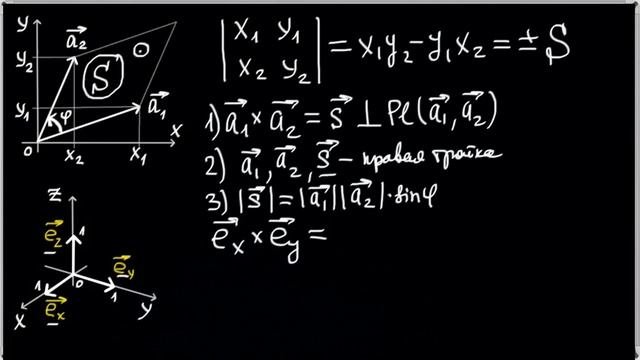 y
a₂
y₂
S
y₁
φ
a₁
0
x₂
x₁
x
| x₁ y₁ |
| x₂ y₂ | = x₁y₂ − y₁x₂ = ± S
1) a⃗₁ × a⃗₂ = s⃗ ⊥ Pl(a⃗₁, a⃗₂)
2) a⃗₁, a⃗₂, s⃗ – правая тройка
3) |s⃗| = |a⃗₁||a⃗₂| · sinφ
e⃗ₓ × e⃗y =
z
e⃗z
1
0
e⃗y
1
1
e⃗ₓ
x
y